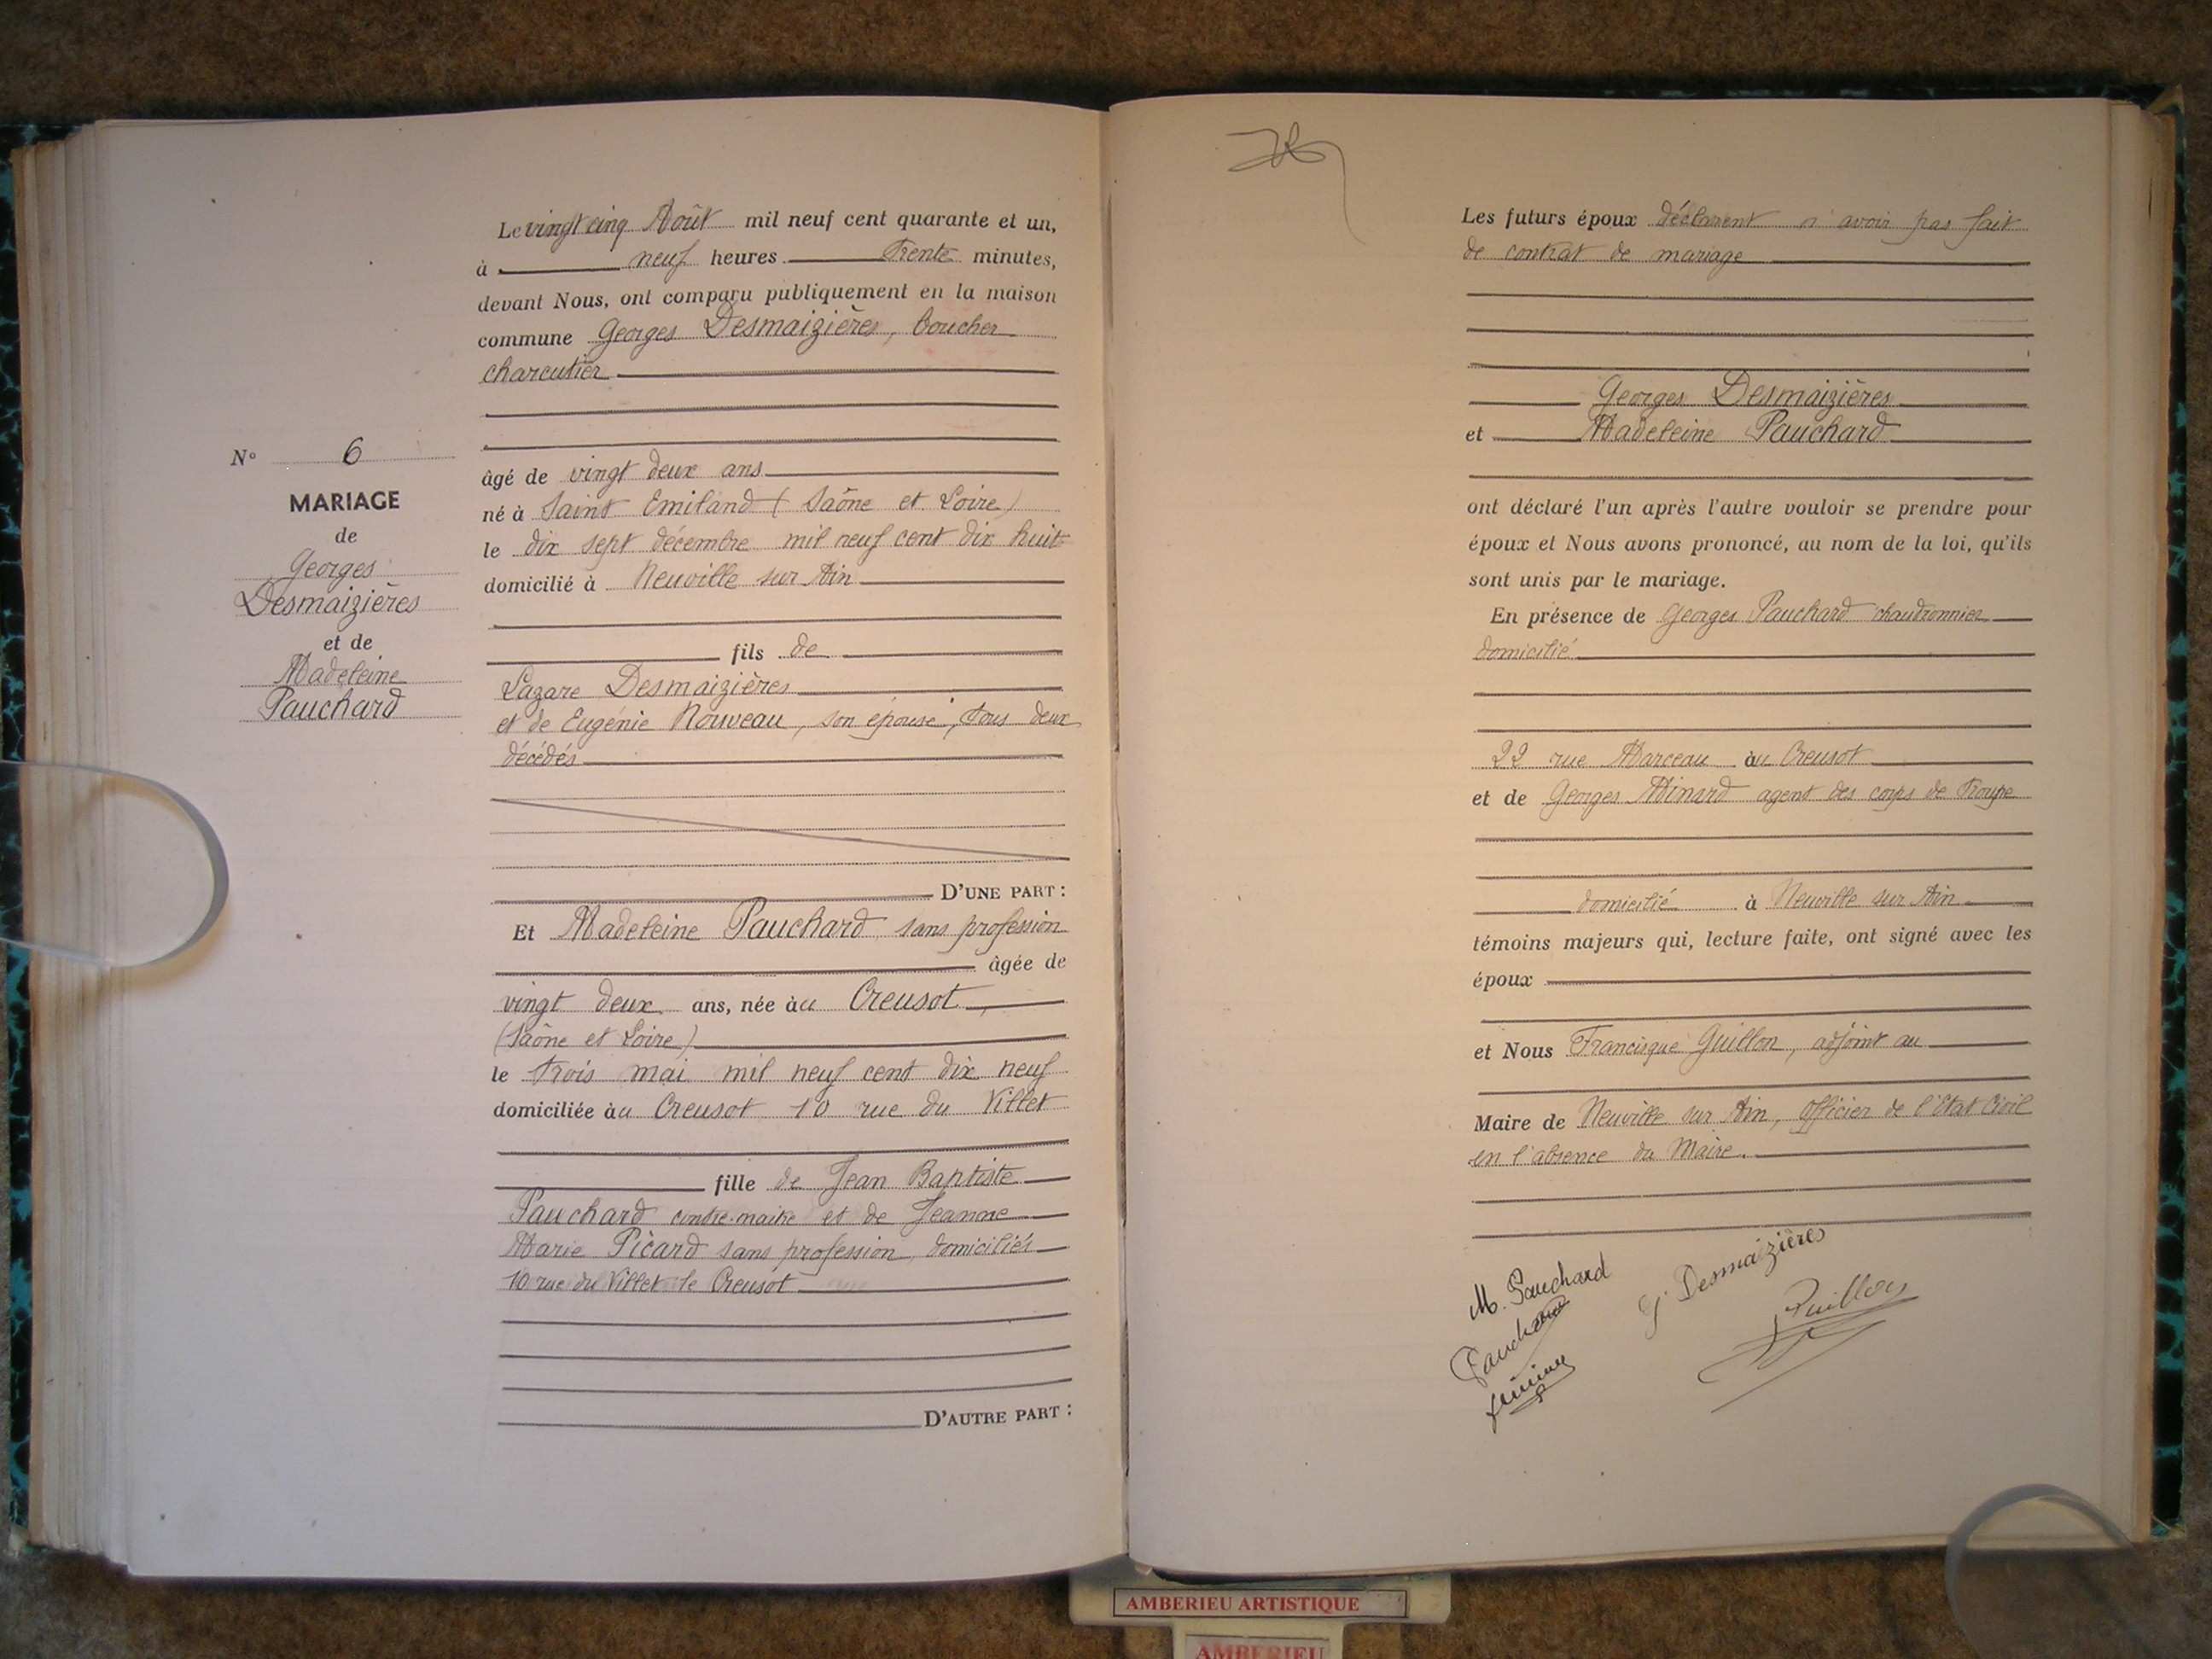 Le vingt cinq Août mil neuf cent quarante et un,
à neuf heures trente minutes,
devant Nous, ont comparu publiquement en la maison
commune Georges Desmaizières, boucher
charcutier
N° 6
MARIAGE
de
Georges
Desmaizières
et de
Madeleine
Pauchard
âgé de vingt deux ans
né à Saint Emiland (Saône et Loire)
le dix sept décembre mil neuf cent dix huit
domicilié à Neuville sur Ain
fils de
Lazare Desmaizières
et de Eugénie Nouveau, son épouse, tous deux
décédés
D'UNE PART :
Et Madeleine Pauchard sans profession
âgée de
vingt deux ans, née au Creusot
(Saône et Loire)
le trois mai mil neuf cent dix neuf
domiciliée au Creusot 10 rue du Villet
fille de Jean Baptiste
Pauchard contre-maître et de Jeanne
Marie Picard sans profession, domiciliés
10 rue du Villet le Creusot
D'AUTRE PART :
Les futurs époux déclarent n'avoir pas fait
de contrat de mariage
Georges Desmaizières
et Madeleine Pauchard
ont déclaré l'un après l'autre vouloir se prendre pour
époux et Nous avons prononcé, au nom de la loi, qu'ils
sont unis par le mariage.
En présence de Georges Pauchard chaudronnier
domicilié
22 rue Marceau au Creusot
et de Georges Minard agent des corps de troupe
domicilié à Neuville sur Ain
témoins majeurs qui, lecture faite, ont signé avec les
époux
et Nous Francisque Guillon, adjoint au
Maire de Neuville sur Ain, Officier de l'Etat Civil
en l'absence du Maire.
M. Pauchard
G. Desmaizières
Pauchard
Guillon
AMBERIEU ARTISTIQUE
AMBERIEU